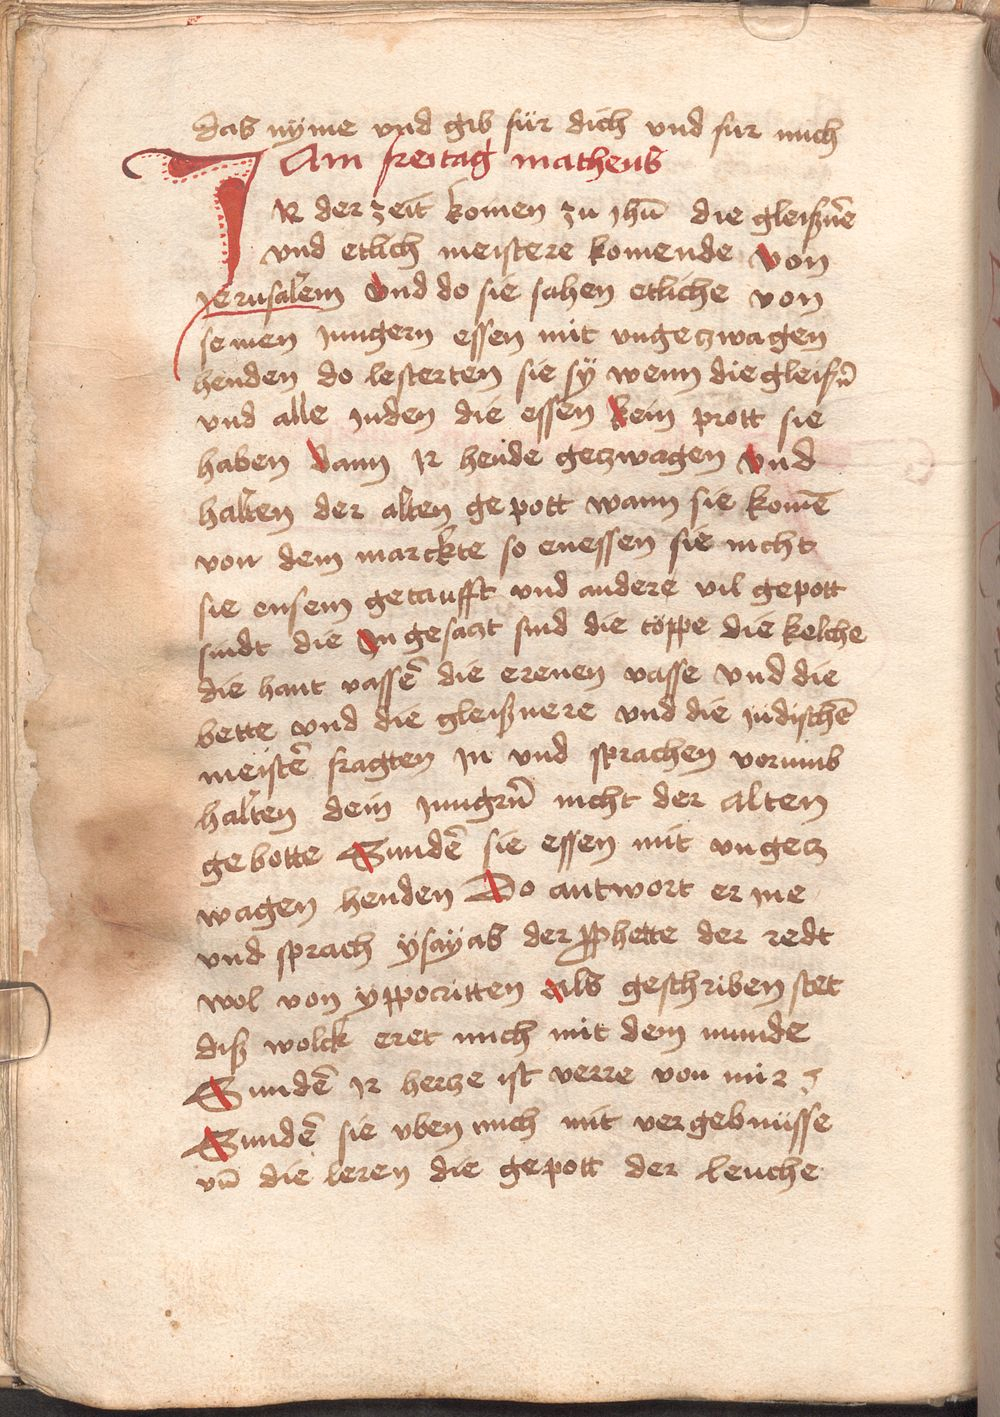 das nÿme vnd gib für dich vnd fur mich
Am freitag matheus
IR der zeit komen zu jhū die gleißn̄e
vnd etlich meistere komende von
jerusalem vnd do sie sahen etliche von
seinen jungern essen mit vngezwagen
henden do lesterten sie sÿ wenn die gleisn̄
vnd alle juden die essen kein prott sie
haben dann jr hende gezwagen vnd
halten der alten gepott wann sie komē
von dem marckte so enessen sie nicht
sie ensein getaufft vnd andere vil gepott
sindt die in gesatzt sind die töppe die kelche
die hant vassē die erenen vasse vnd die
bette vnd die gleißnere vnd die judischē
meistē fragten in vnd sprachen vorumb
halten dein jungrn̄ nicht der alten
gebotte Sundē sie essen mit vngecz
wagen henden Do antwort er jne
vnd sprach ÿsaÿas der prophette der redt
wol von yppocritten als geschriben stet
diß wolck eret mich mit dem munde
Sundē jr hercze ist verre von mir
Sundē sie vben mich mit vergebnüsse
vn̄ die leren die gepott der leuthe